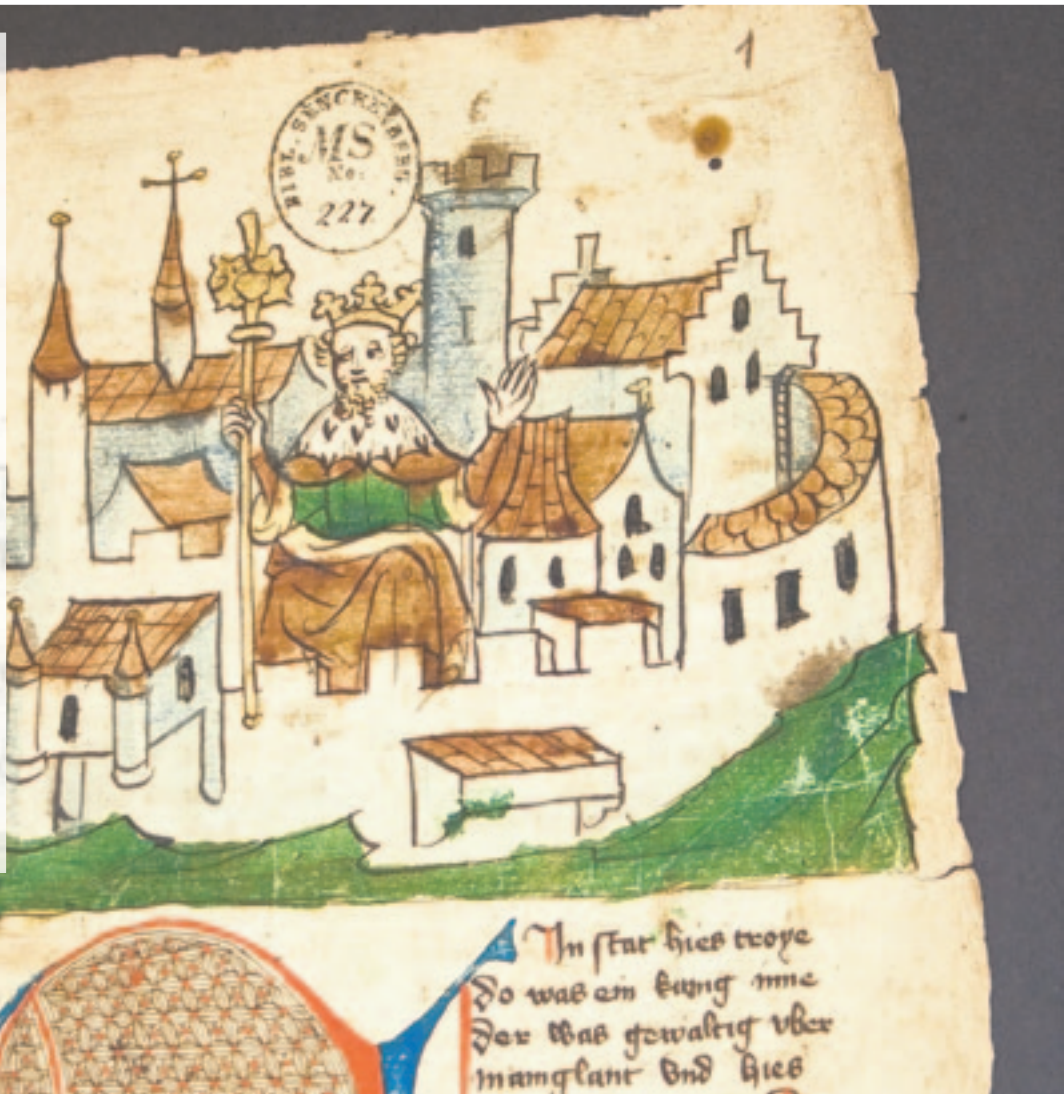 1
BIBL. SENCKENBERG.
MS
No:
227
In stat hies troye
do was ein kunig inne
der was gewaltig vber
manig lant vnd hies